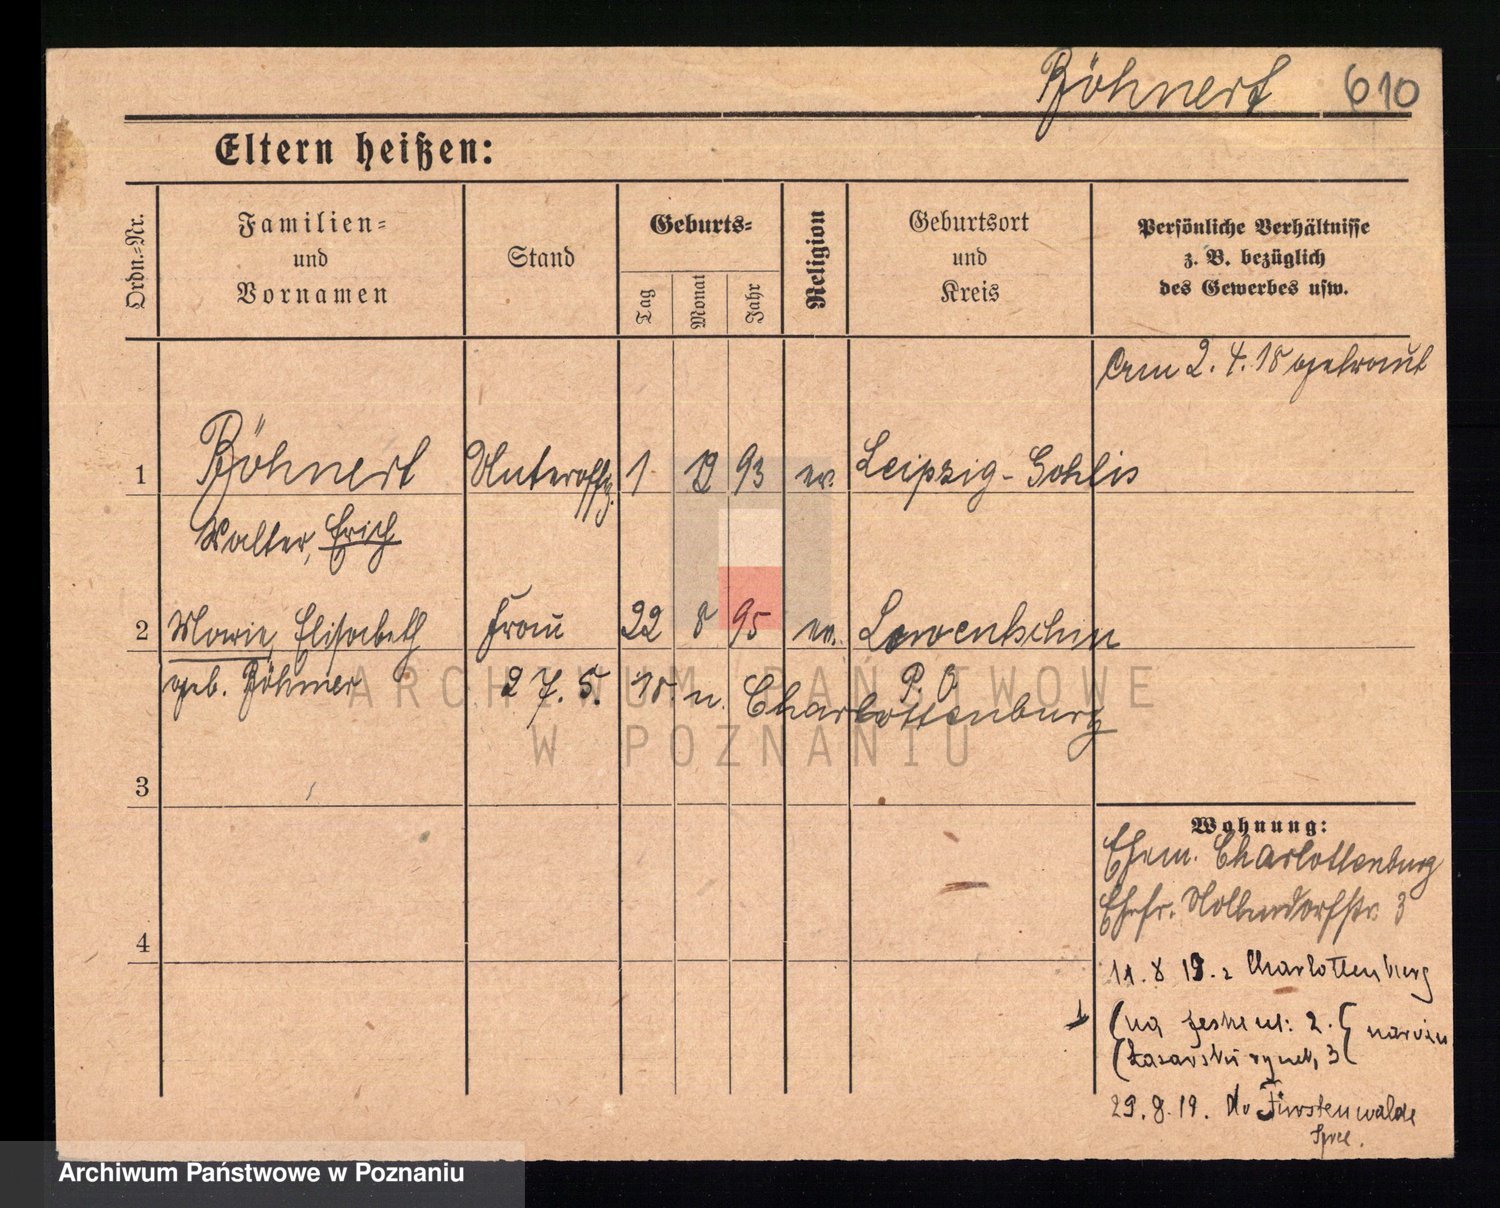 Böhnert 610
Eltern heißen:
Ordn.-Nr.
Familien-
und
Vornamen
Stand
Geburts-
Tag
Monat
Jahr
Religion
Geburtsort
und
Kreis
Persönliche Verhältnisse
z. B. bezüglich
des Gewerbes usw.
Am 2. 4. 18 getraut
1 Böhnert Unteroffz. 1 12 93 ev. Leipzig-Gohlis
Walter, Erich
2 Marie, Elisabeth Frau 22 8 95 ev.
geb. Böhmer 27. 5. 18 n. Charlottenburg
P. O.
3
4
Wohnung:
Ehem. Charlottenburg
Ehefr. Nollendorfstr. 3
11. 8 19. z Charlottenburg
(na 2.
(Łazarski rynek, 3
29. 8. 19. do Fürstenwalde
Spree.
ARCHIWUM PAŃSTWOWE
W POZNANIU
Archiwum Państwowe w Poznaniu